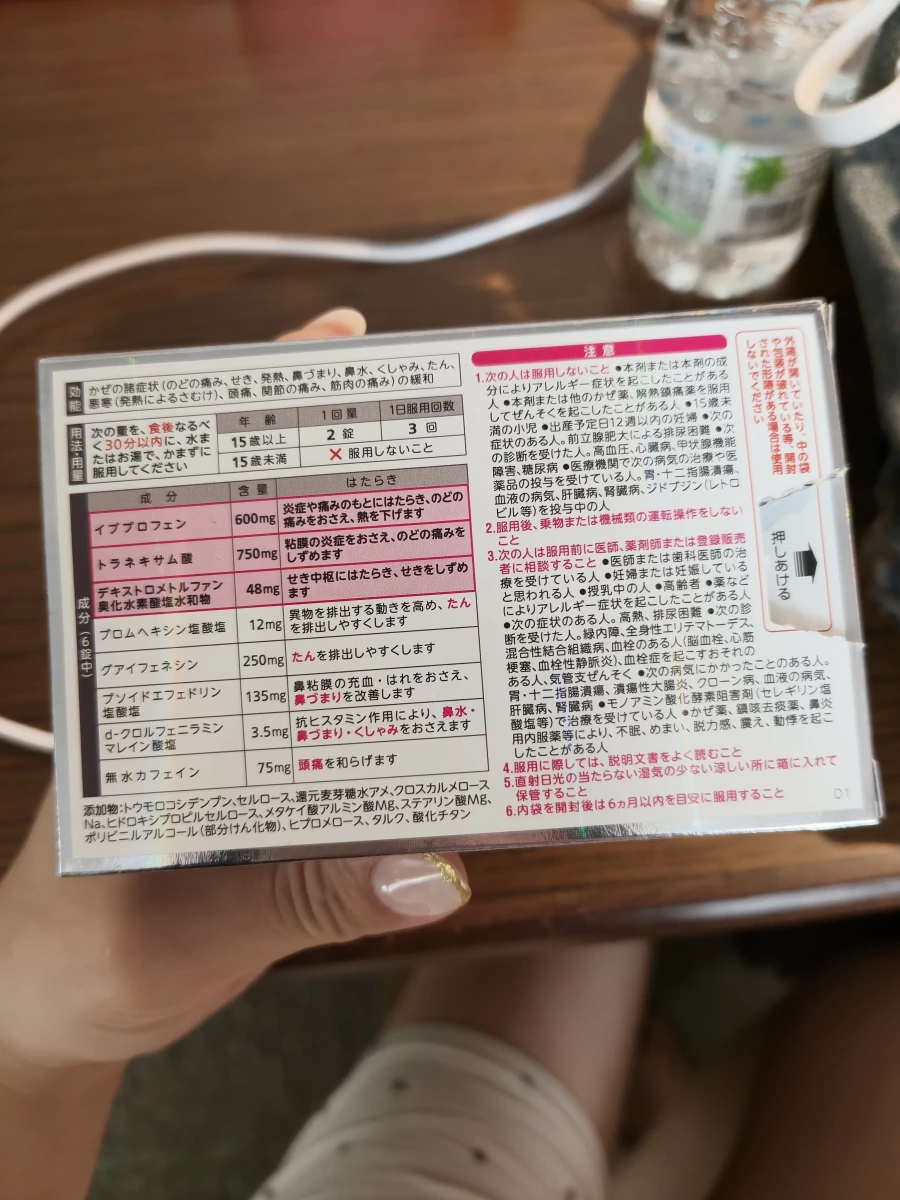 効能
かぜの諸症状(のどの痛み、せき、発熱、鼻づまり、鼻水、くしゃみ、たん、
悪寒(発熱によるさむけ)、頭痛、関節の痛み、筋肉の痛み)の緩和
用法・用量
次の量を、食後なるべ
く30分以内に、水ま
たはお湯で、かまずに
服用してください
年齢 1回量 1日服用回数
15歳以上 2錠 3回
15歳未満 ✕ 服用しないこと
成分(6錠中)
成分 含量 はたらき
イブプロフェン 600mg 炎症や痛みのもとにはたらき、のどの
痛みをおさえ、熱を下げます
トラネキサム酸 750mg 粘膜の炎症をおさえ、のどの痛みを
しずめます
デキストロメトルファン
臭化水素酸塩水和物 48mg せき中枢にはたらき、せきをしずめ
ます
ブロムヘキシン塩酸塩 12mg 異物を排出する動きを高め、たん
を排出しやすくします
グアイフェネシン 250mg たんを排出しやすくします
プソイドエフェドリン
塩酸塩 135mg 鼻粘膜の充血・はれをおさえ、
鼻づまりを改善します
d-クロルフェニラミン
マレイン酸塩 3.5mg 抗ヒスタミン作用により、鼻水・
鼻づまり・くしゃみをおさえます
無水カフェイン 75mg 頭痛を和らげます
添加物:トウモロコシデンプン、セルロース、還元麦芽糖水アメ、クロスカルメロース
Na、ヒドロキシプロピルセルロース、メタケイ酸アルミン酸Mg、ステアリン酸Mg、
ポリビニルアルコール(部分けん化物)、ヒプロメロース、タルク、酸化チタン
注意
1.次の人は服用しないこと ●本剤または本剤の成
分によりアレルギー症状を起こしたことがある
人 ●本剤または他のかぜ薬、解熱鎮痛薬を服用
してぜんそくを起こしたことがある人 ●15歳未
満の小児 ●出産予定日12週以内の妊婦 ●次の
症状のある人。前立腺肥大による排尿困難 ●次
の診断を受けた人。高血圧、心臓病、甲状腺機能
障害、糖尿病 ●医療機関で次の病気の治療や医
薬品の投与を受けている人。胃・十二指腸潰瘍、
血液の病気、肝臓病、腎臓病、ジドブジン(レトロ
ビル等)を投与中の人
2.服用後、乗物または機械類の運転操作をしない
こと
3.次の人は服用前に医師、薬剤師または登録販売
者に相談すること ●医師または歯科医師の治
療を受けている人 ●妊婦または妊娠している
と思われる人 ●授乳中の人 ●高齢者 ●薬など
によりアレルギー症状を起こしたことがある人
●次の症状のある人。高熱、排尿困難 ●次の診
断を受けた人。緑内障、全身性エリテマトーデス、
混合性結合組織病、血栓のある人(脳血栓、心筋
梗塞、血栓性静脈炎)、血栓症を起こすおそれの
ある人、気管支ぜんそく ●次の病気にかかったことのある人。
胃・十二指腸潰瘍、潰瘍性大腸炎、クローン病、血液の病気、
肝臓病、腎臓病 ●モノアミン酸化酵素阻害剤(セレギリン塩
酸塩等)で治療を受けている人 ●かぜ薬、鎮咳去痰薬、鼻炎
用内服薬等により、不眠、めまい、脱力感、震え、動悸を起こ
したことがある人
4.服用に際しては、説明文書をよく読むこと
5.直射日光の当たらない湿気の少ない涼しい所に箱に入れて
保管すること
6.内袋を開封後は6ヵ月以内を目安に服用すること
D1
外箱が開いていたり、中の袋
や包装が破れている等、開封
された形跡がある場合は使用
しないでください
押しあける